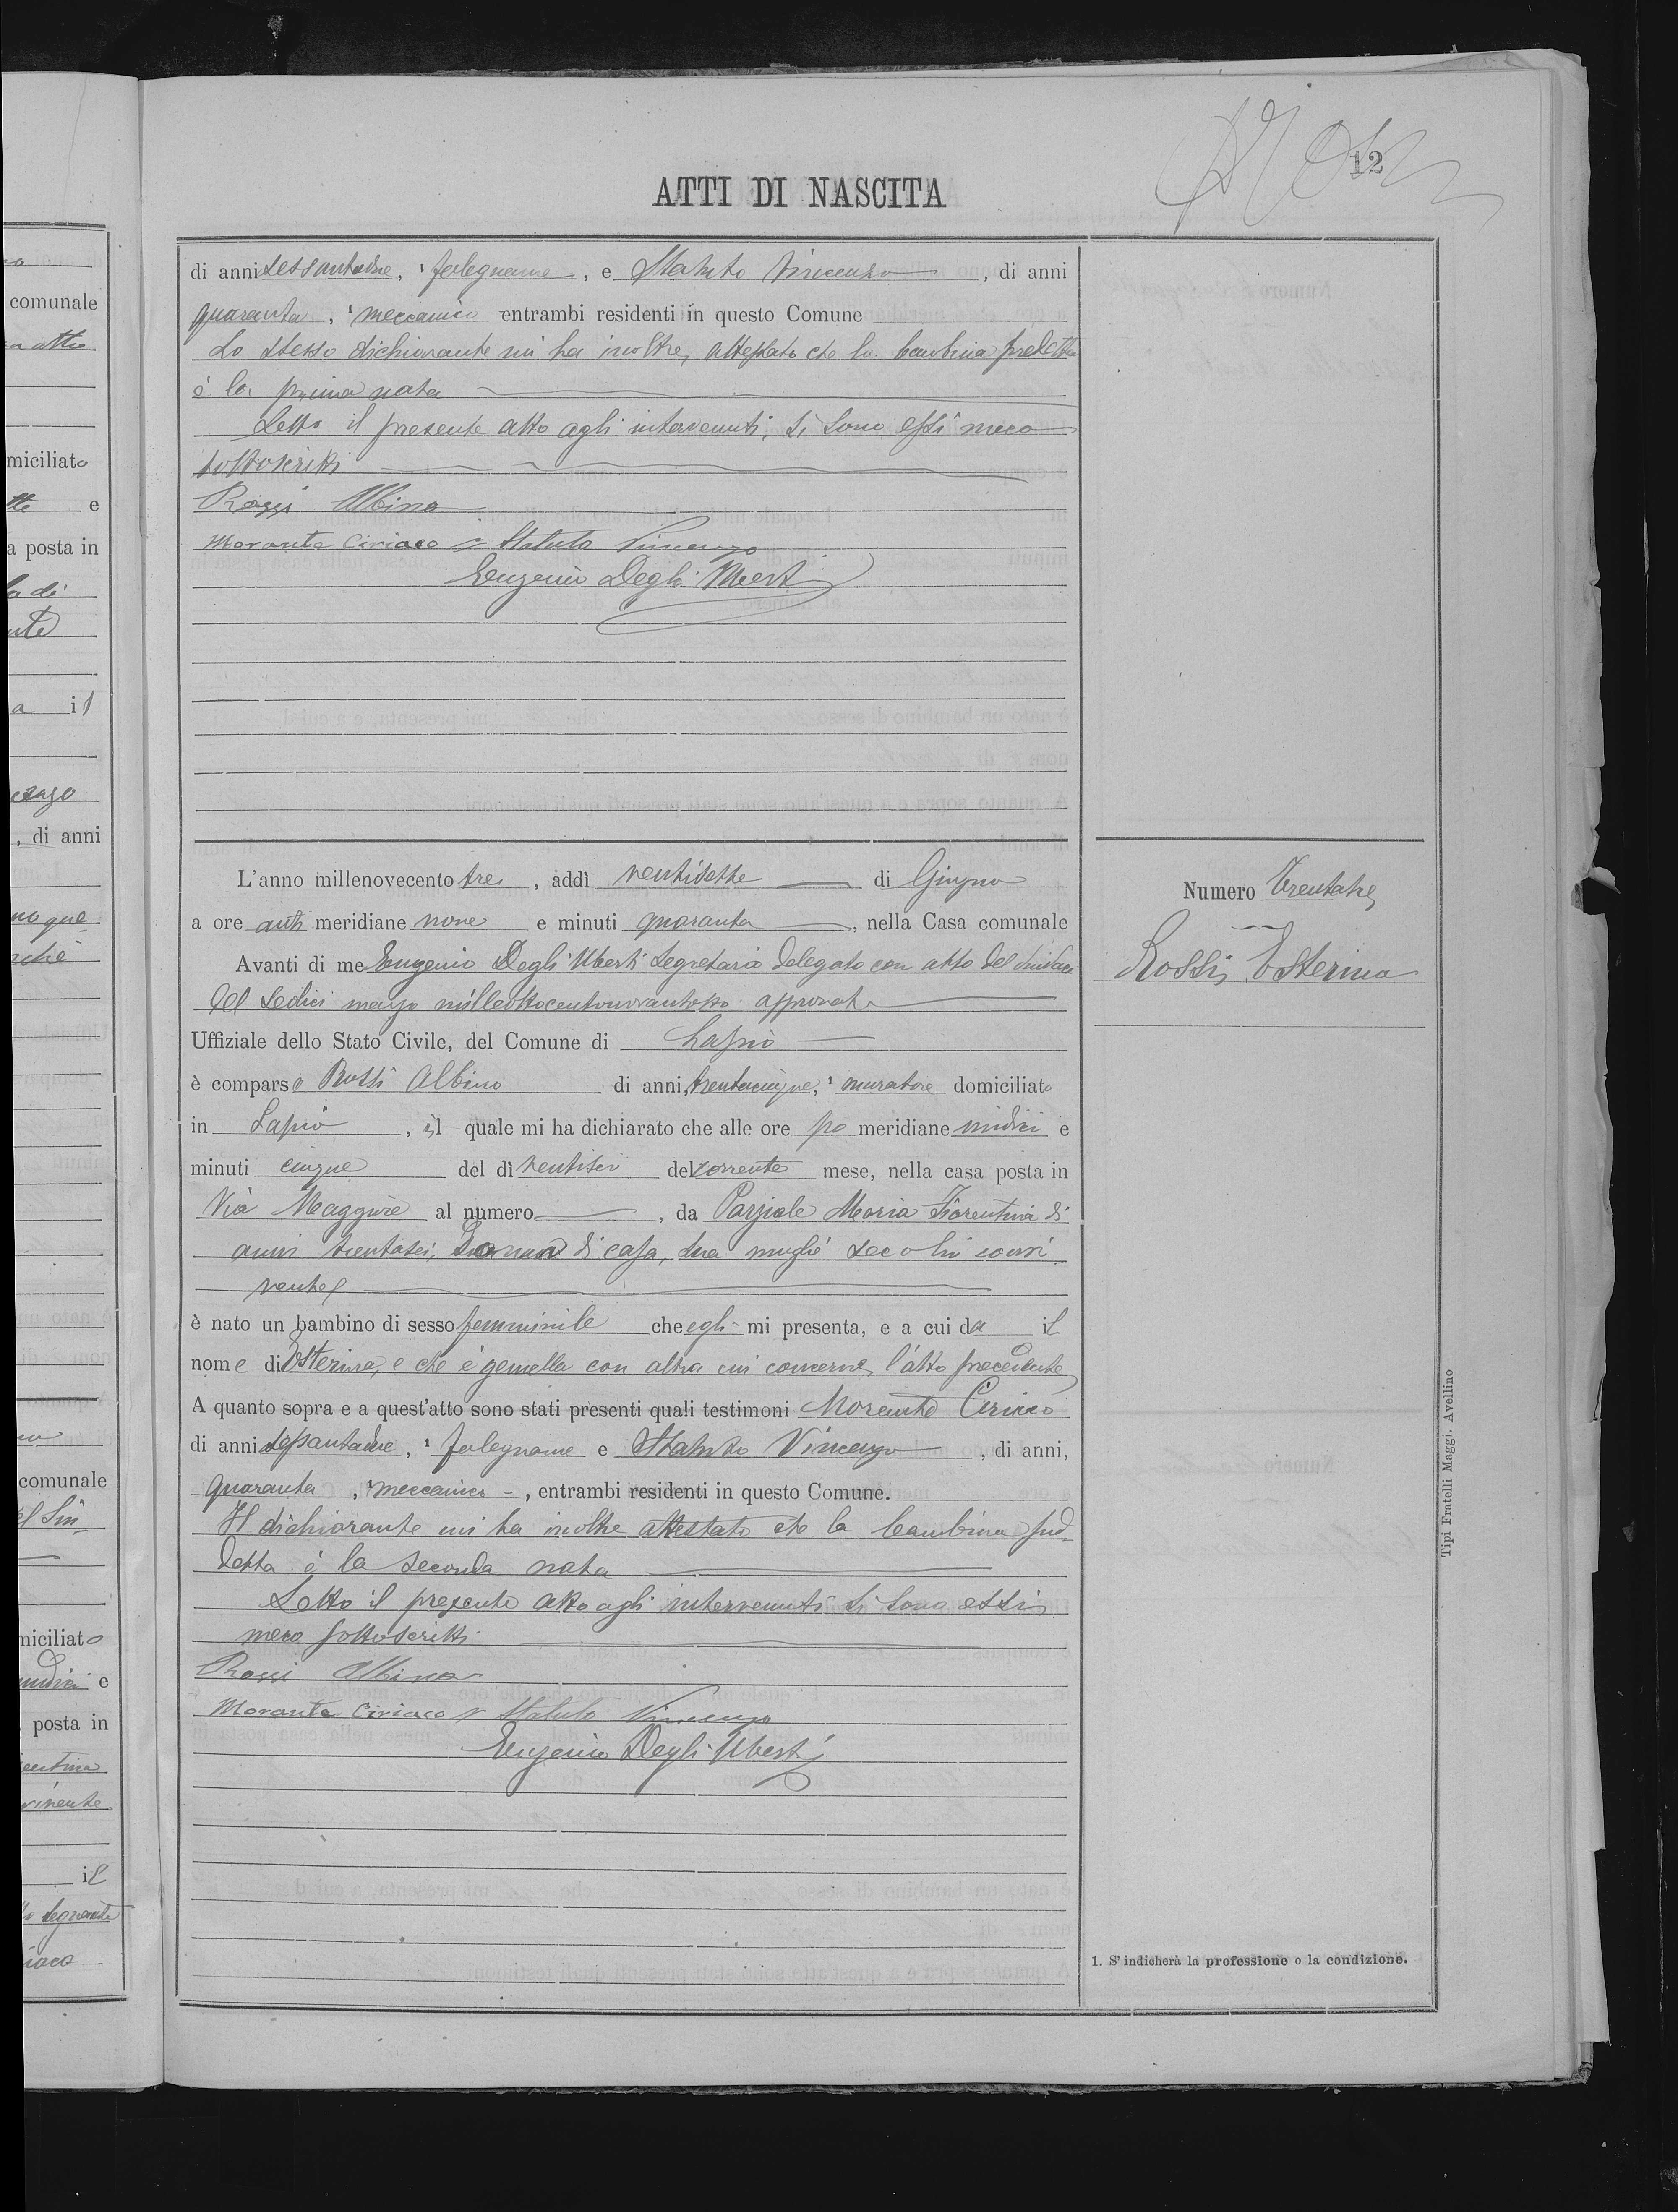 12
ATTI DI NASCITA
di anni sessantadue, ¹ falegname, e Statuto Vincenzo, di anni
quaranta, ¹ meccanico entrambi residenti in questo Comune
Lo stesso dichiarante mi ha inoltre, attestato che la bambina predetta
è la prima nata
Letto il presente atto agli intervenuti, si sono essi meco
sottoscritti
Rossi Albino
Morante Ciriaco Statuto Vincenzo
Eugenio Degli Uberti
L'anno millenovecento tre, addì ventisette di Giugno
a ore anti meridiane nove e minuti quaranta, nella Casa comunale
Avanti di me Eugenio Degli Uberti Segretario delegato con atto del Sindaco
del sedici marzo milleottocentonovanta approvato
Uffiziale dello Stato Civile, del Comune di Lapio
è comparso Rossi Albino di anni trentacinque, ¹ muratore domiciliato
in Lapio, il quale mi ha dichiarato che alle ore po meridiane undici e
minuti cinque del dì ventisei del corrente mese, nella casa posta in
Via Maggiore al numero, da Parziale Maria Fiorentina di
anni trentasei, Donna di casa, sua moglie seco lui convi
vente
è nato un bambino di sesso femminile che egli mi presenta, e a cui da il
nome di Esterina, e che è gemella con altra cui concerne l'atto precedente
A quanto sopra e a quest'atto sono stati presenti quali testimoni Morante Ciriaco
di anni sessantadue, ¹ falegname e Statuto Vincenzo, di anni,
quaranta, ¹ meccanico -, entrambi residenti in questo Comune.
Il dichiarante mi ha inoltre attestato che la bambina sud
detta è la seconda nata
Letto il presente atto agli intervenuti si sono essi
meco sottoscritti
Rossi Albino
Morante Ciriaco Statuto Vincenzo
Eugenio Degli Uberti
Numero Trentatre
Rossi Esterina
1. S'indicherà la professione o la condizione.
Tipi Fratelli Maggi. Avellino
comunale
miciliato
e
a posta in
a il
, di anni
comunale
miciliato
e
posta in
il